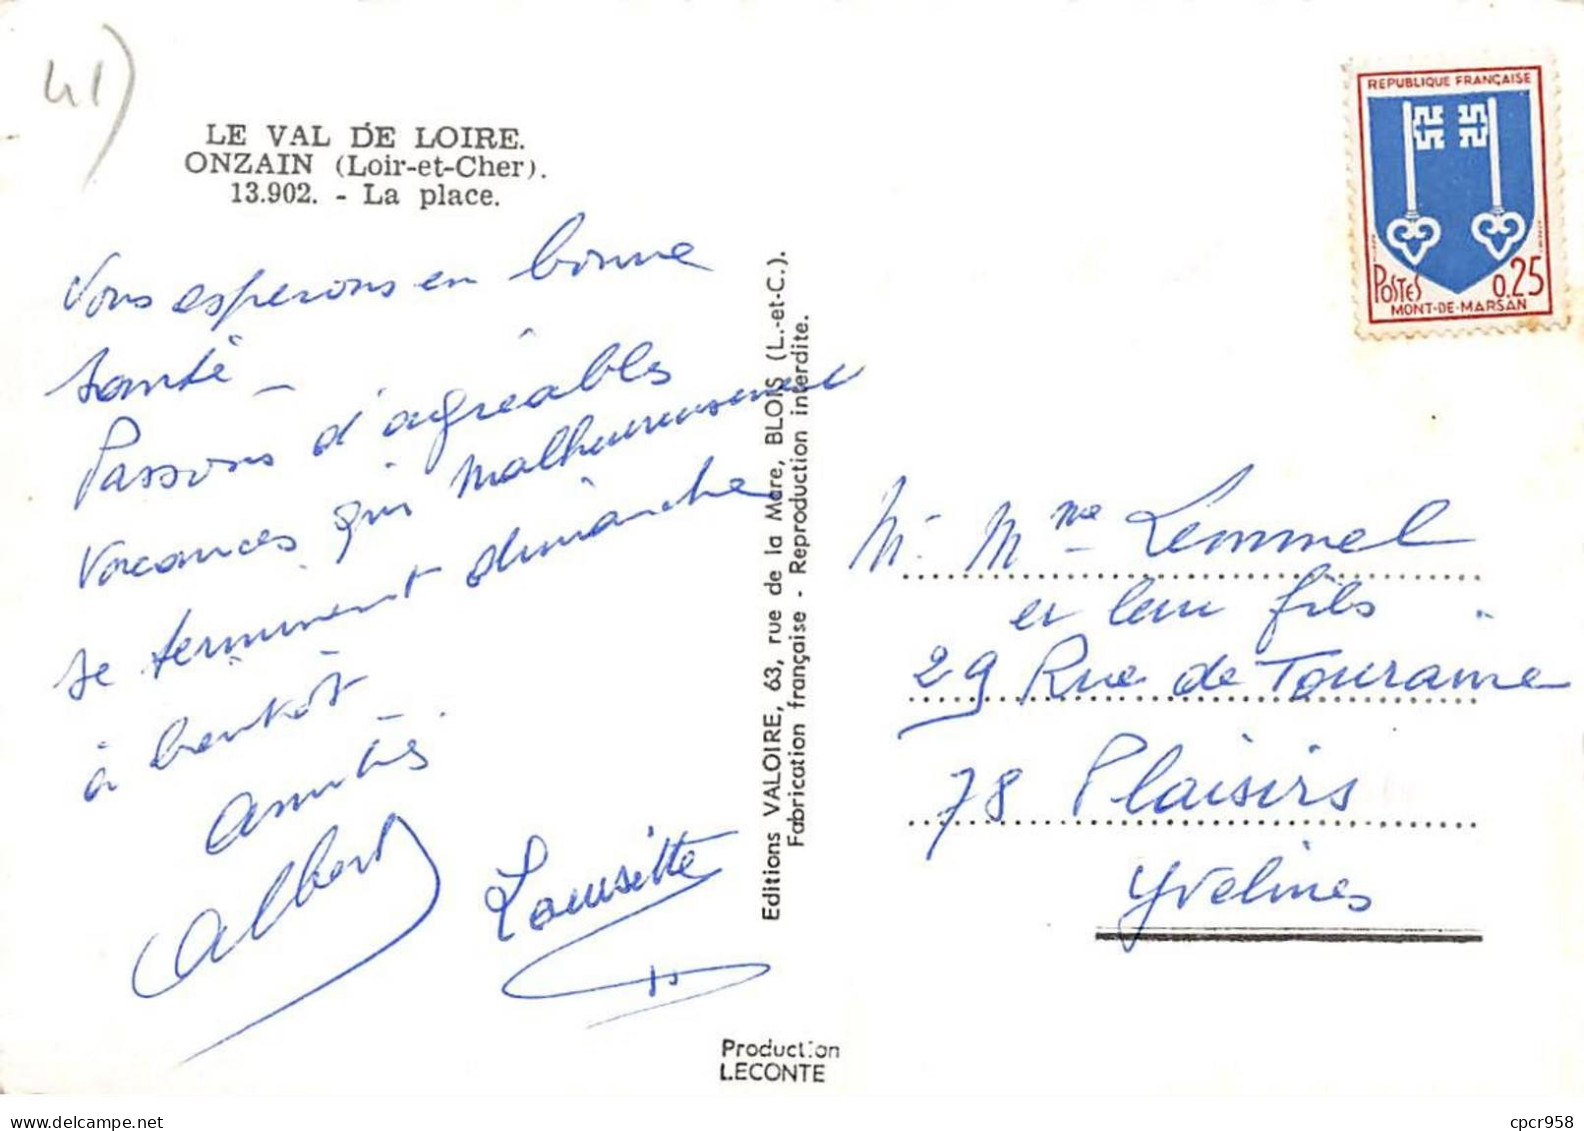 41)
LE VAL DE LOIRE.
ONZAIN (Loir-et-Cher).
13.902. - La place.
Vous esperons en bonne
santé -
Passons d'agréables
vacances qui malheureusement
se terminent dimanche
à bientôt -
amitiés.
Albert
Lousitte
Editions VALOIRE, 63, rue de la Mare, BLOIS (L.-et-C.).
Fabrication française - Reproduction interdite.
Production
LECONTE
REPUBLIQUE FRANÇAISE
POSTES 0,25
MONT-DE-MARSAN
M. Mme Lemmel
et leur fils
29 Rue de Touraine
78 Plaisirs
Yvelines
cpcr958